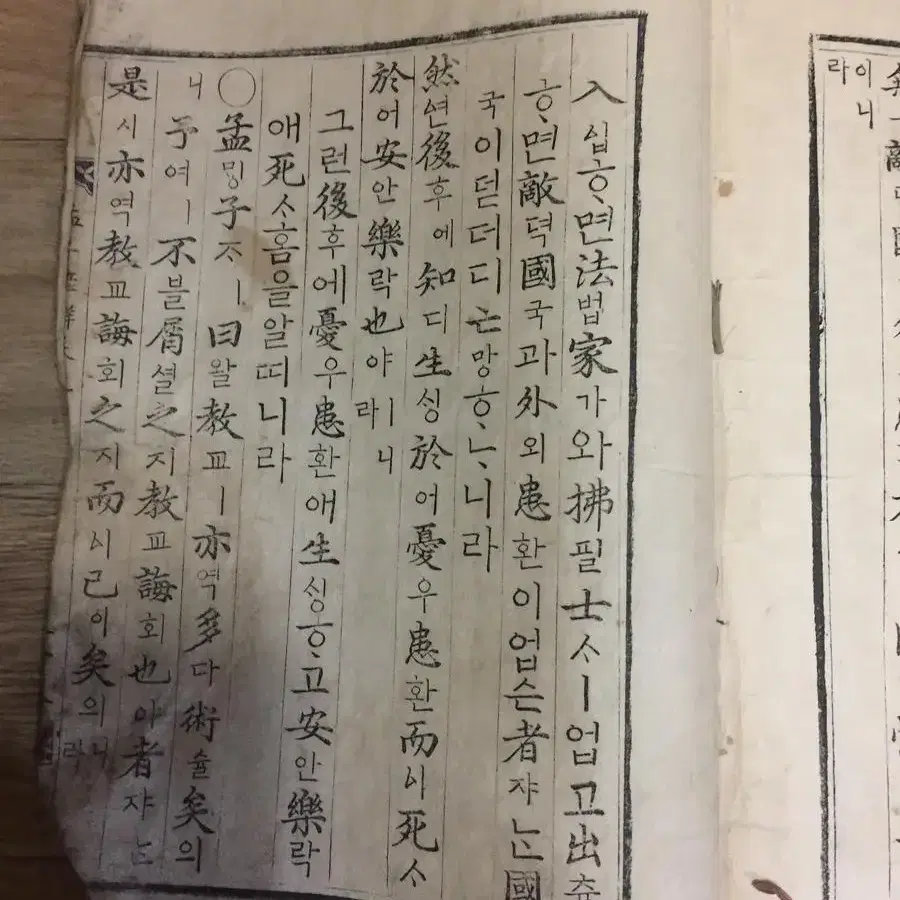 이니라
入십ᄒᆞ면法법家가와拂필士ᄉᆞㅣ업고出츄
ᄒᆞ면敵뎍國국과外외患환이업슨者쟈ᄂᆞᆫ國
국이덛더디亡망ᄒᆞᄂᆞ니라
然연後후에知디生ᄉᆡᆼ於어憂우患환而이死ᄉᆞ
於어安안樂락也야ㅣ니라
그런後후에憂우患환애生ᄉᆡᆼᄒᆞ고安안樂락
애死ᄉᆞ홈을알띠니라
○孟ᄆᆡᆼ子ᄌᆞㅣ曰왈教교ㅣ亦역多다術슐矣의
니予여ㅣ不블屑셜之지教교誨회也야者쟈ᄂᆞᆫ
是시亦역教교誨회之지而이已이矣의니라